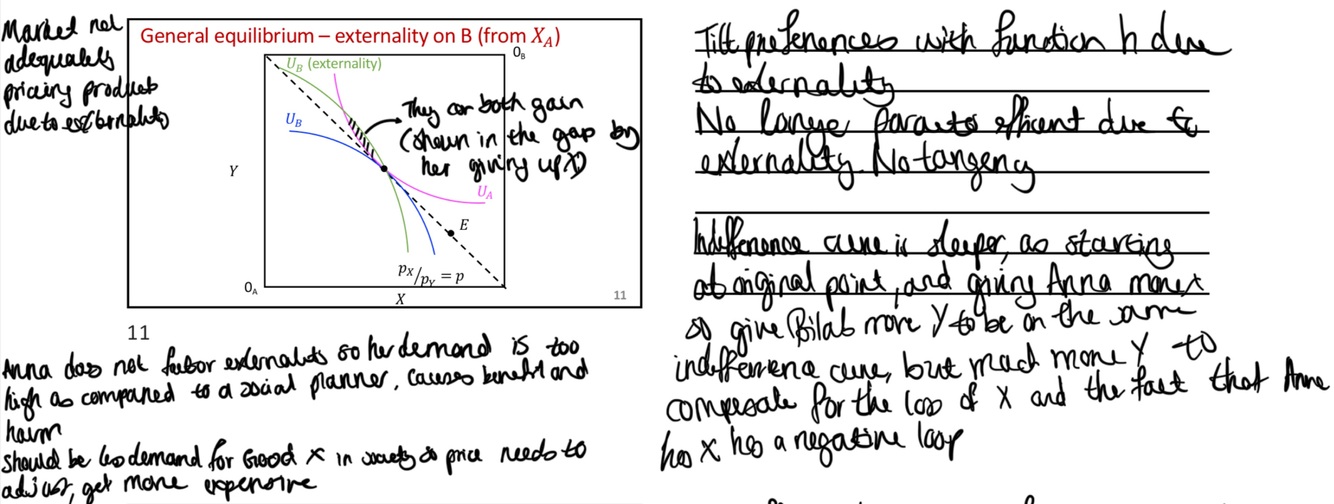 Market not
adequately
pricing product
due to externality
General equilibrium – externality on B (from X_A)
0_B
U_B (externality)
They can both gain
(shown in the gap by
her giving up X)
U_B
Y
U_A
E
p_X/p_Y = p
0_A
X
11
11
Anna does not factor externality so her demand is too
high as compared to a social planner, causes benefit and
harm
Should be less demand for Good X in society so price needs to
adjust, get more expensive
Tilt preferences with function h due
to externality
No longer pareto efficient due to
externality. No tangency
Indifference curve is steeper, as starting
at original point, and giving Anna more X
so give Bilab more Y to be on the same
indifference curve, but much more Y to
compensate for the loss of X and the fact that Anna
has X has a negative loop